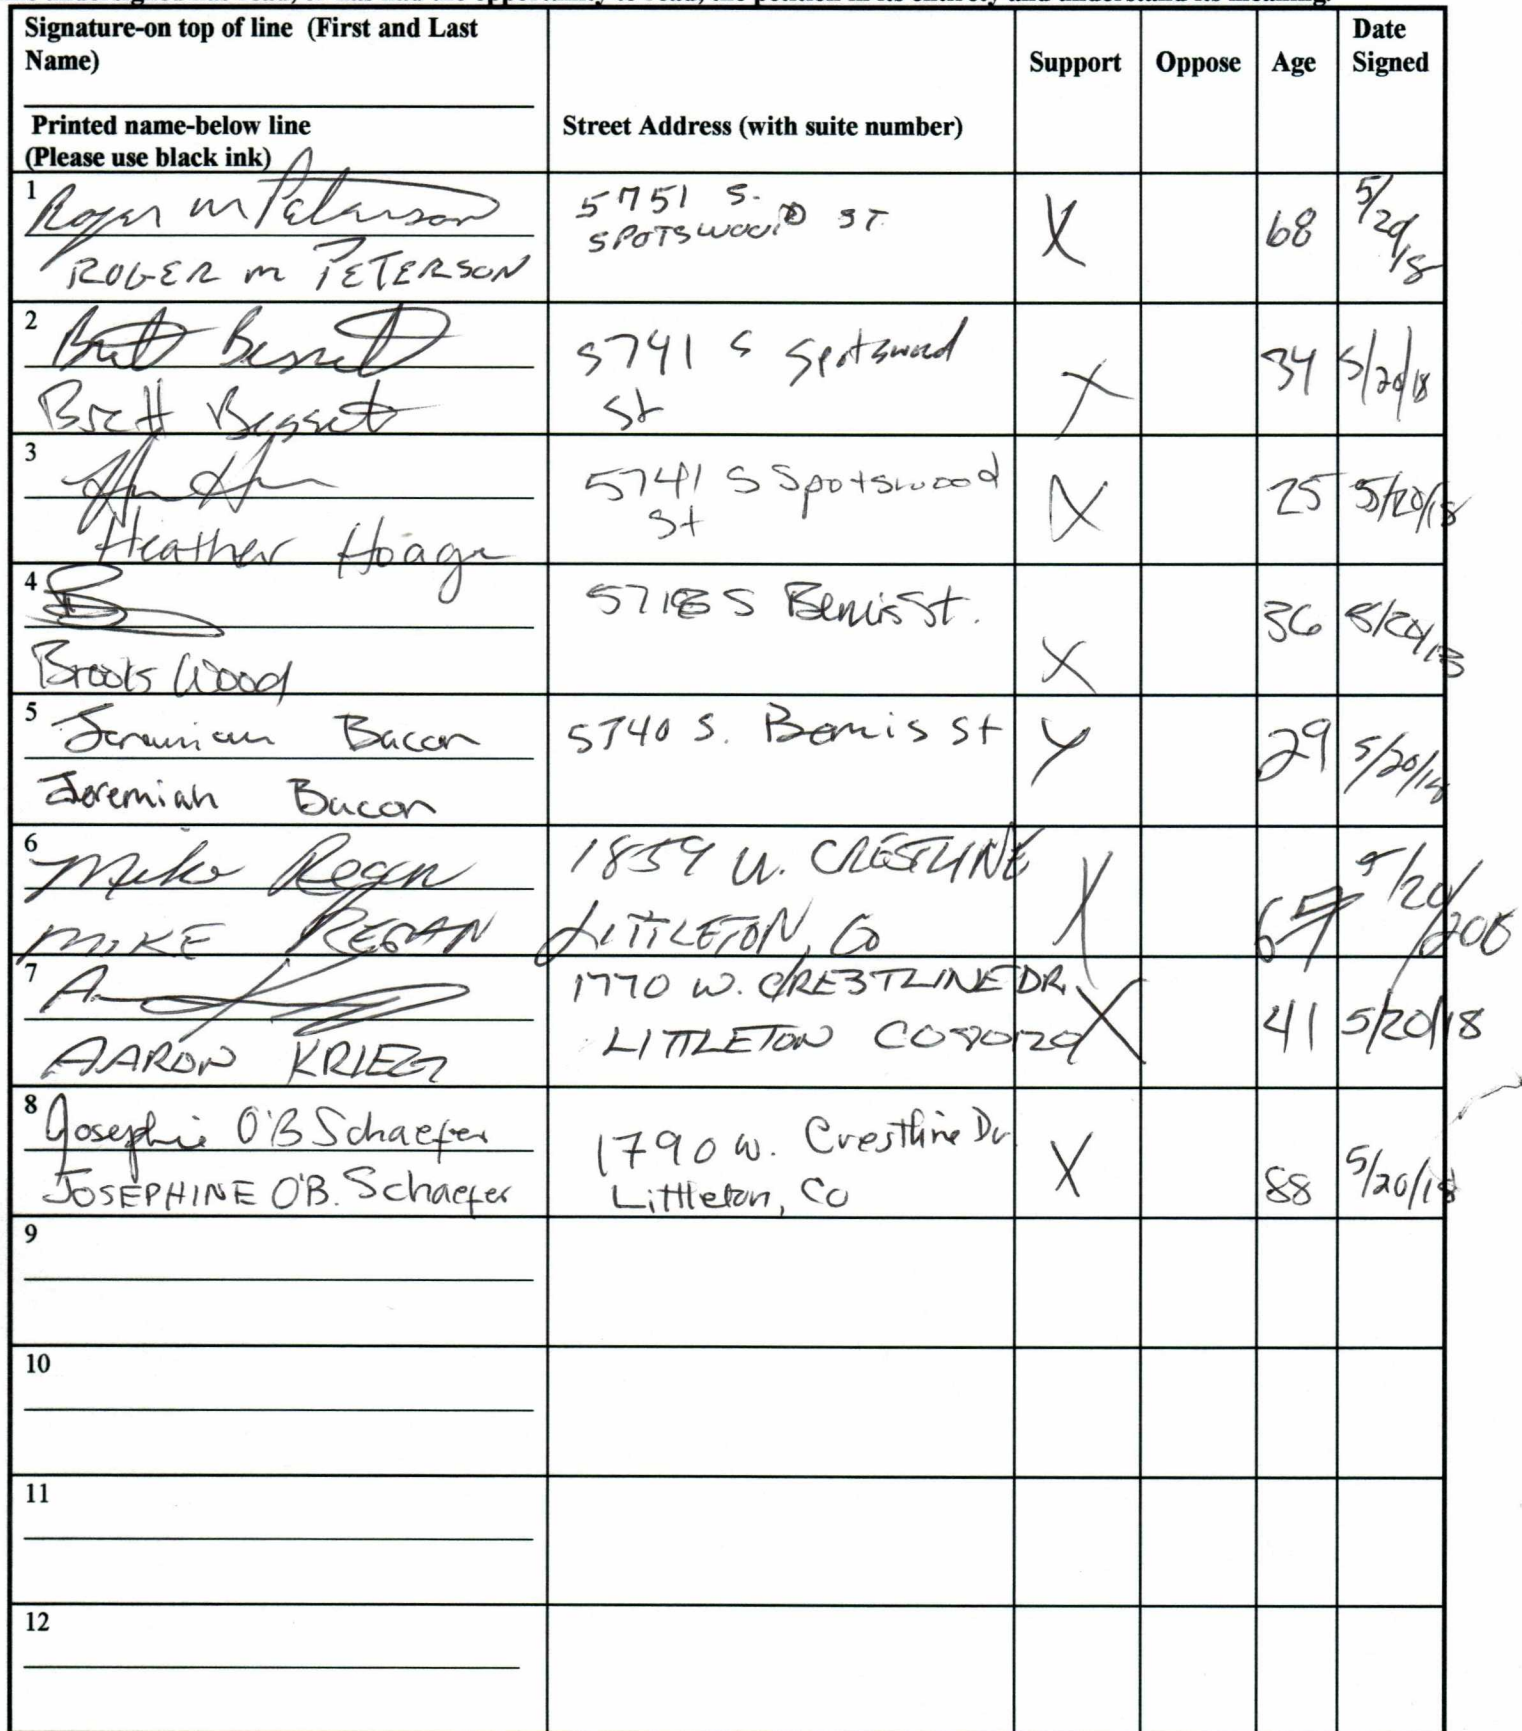 Signature-on top of line (First and Last
Name)
Printed name-below line
(Please use black ink)
Street Address (with suite number)
Support
Oppose
Age
Date
Signed
1
Roger m Peterson
ROGER m PETERSON
5751 S.
SPOTSWOOD ST.
X
68
5/20/18
2
Brett Bessett
Brett Bessett
5741 S Spotswood
St
X
34
5/20/18
3
Heather Hoage
5741 S Spotswood
St
X
25
5/20/18
4
Brooks Wood
S Bemis St.
X
36
5/20/18
5
Jeremiah Bacon
Jeremiah Bacon
5740 S. Bemis St
X
29
5/20/18
6
Mike Regan
MIKE REGAN
1859 W. CRESTLINE
LITTLETON, CO
X
5/20/
7
AARON KRIEG
1770 W. CRESTLINE DR.
LITTLETON CO 80120
X
41
5/20/18
8
Josephine O'B Schaefer
JOSEPHINE O'B. Schaefer
1790 W. Crestline Dr
Littleton, Co
X
88
5/20/18
9
10
11
12